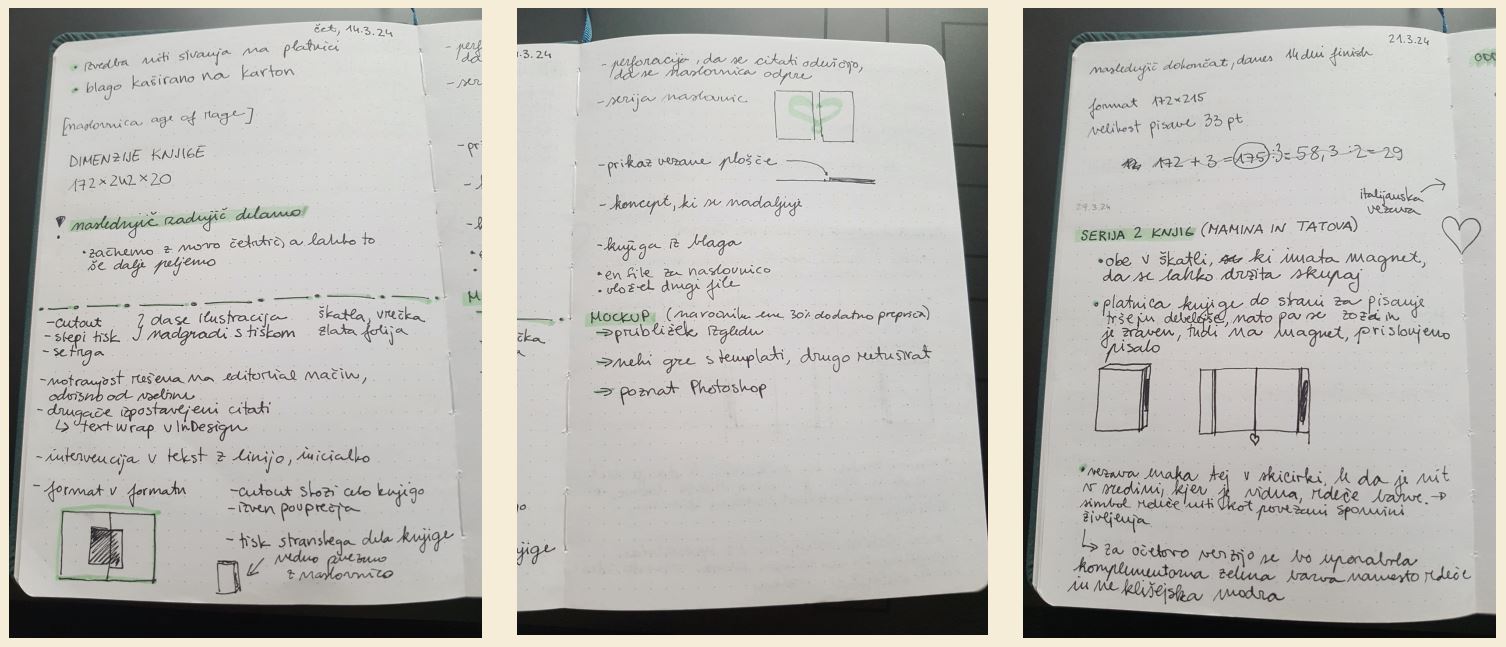 čet, 14.3.24
• izvedba niti šivanja na platnici
• blago kaširano na karton
[naslovnica age of rage]
DIMENZIJE KNJIGE
172×242×20
naslednjič zadnjič delamo
• začnemo z novo četrtic, a lahko to
še dalje peljemo
-cutout
-slepi tisk
-se trga
} dase ilustracija
nadgradi s tiškom
škatla, vrečka
zlata folija
-notranjost rešena na editorial način,
odvisno od vsebine
- drugače izpostavljeni citati
↳ text wrap v InDesign
-intervencija v tekst z linijo, inicialko
- format v formatu
-cutout skozi celo knjigo
-izven povprečja
- tisk stranskega dela knjige
vedno povezano
z naslovnico
.3.24
- perforacije, da se citati odkrijejo,
da se naslovnica odpre
-serija naslovnic
-prikaz vezane plošče
- koncept, ki se nadaljuje
-knjiga iz blaga
• en file za naslovnico
• vložek drugi file
MOCKUP (naročniku ene 30% dodatno prepriča)
→približek izgledu
→nehi gre s templati, drugo retuširat
→ poznat Photoshop
21.3.24
naslednjič dokončat, danes 14 dni finish
format 172×215
velikost pisave 33 pt
172 + 3 = 175 :3 = 58,3 :2 = 29
italijanska
vezava
21.3.24
SERIJA 2 KNJIG (MAMINA IN TATOVA)
• obe v škatli, ki imata magnet,
da se lahko držita skupaj
• platnica knjige do strani za pisanje
tršejn debelejše, nato pa se
je zraven, tudi na magnet, prislonjeno
pisalo
• vezava enaka tej v skicirki, le da je nit
v sredini, kjer je vidna, rdeče barve. →
simbol rdeče niti kot povezani spomini
življenja
↳ za očetovo verzijo se bo uporabila
komplementarna zelena barva namesto rdeče
in ne klišejska modra